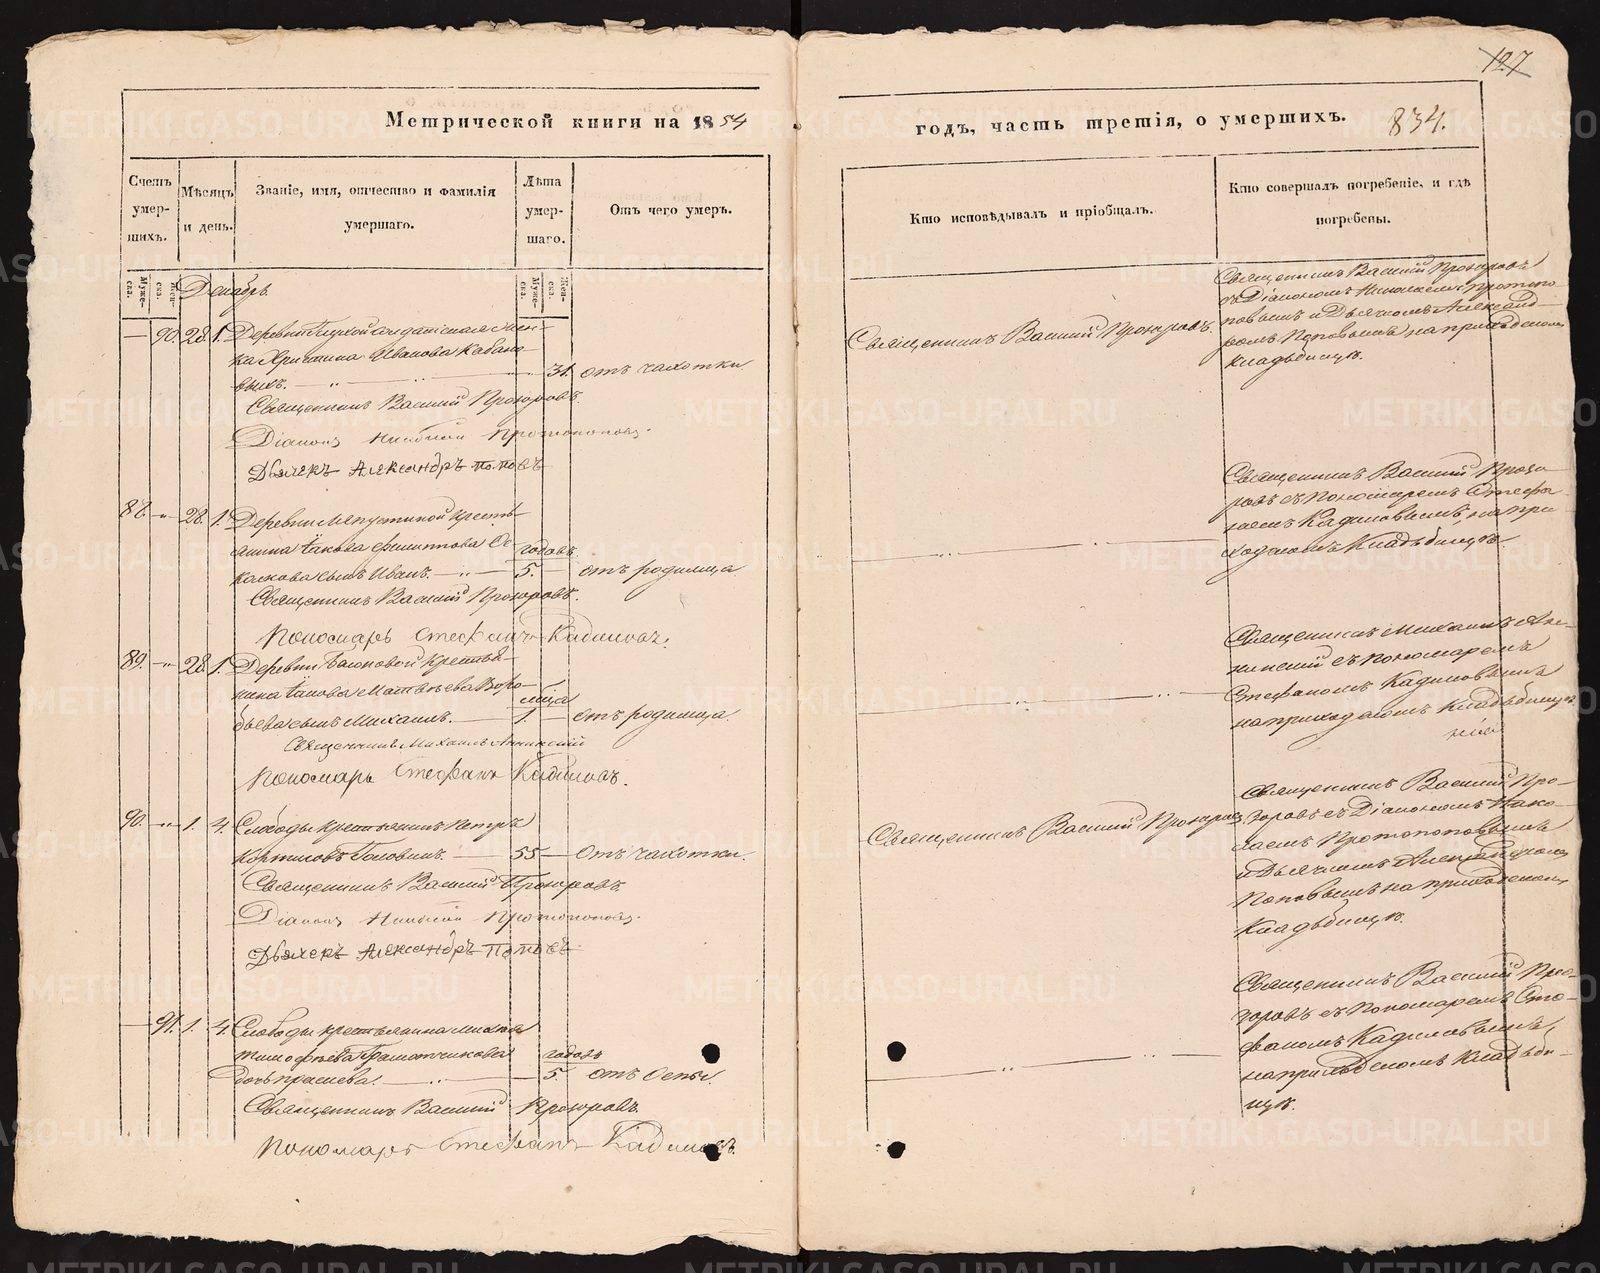 127
Метрической книги на 1854
годъ, часть третія, о умершихъ.
834.
Счетъ умер-шихъ.
Мѣсяцъ и день.
Званіе, имя, отчество и фамилія умершаго.
Лѣта умер-шаго.
Отъ чего умеръ.
Кто исповѣдывалъ и пріобщалъ.
Кто совершалъ погребеніе, и гдѣ погребены.
Муже-ска.
Жен-ска.
Муже-ска.
Жен-ска.
Декабрь
90. 28. 1. Деревни солдатская жен-
ка Иванова Кабано-
выхъ. 31. отъ чахотки
Священникъ Василій Прозоровъ.
Діаконъ Николай Протопоповъ.
Дьячекъ Александръ Поповъ
Священникъ Василій Прозоровъ.
Священникъ Василій Прозоровъ
съ Діакономъ Николаемъ Протопо-
повымъ и Дьячкомъ Александ-
ромъ Поповымъ на приходскомъ
кладьбищѣ.
88. 28. 1. Деревни крестья-
нина Іакова Филиппова
годовъ
сынъ Иванъ. 5. отъ родимца
Священникъ Василій Прозоровъ.
Пономарь Стефанъ Кадиловъ.
Священникъ Василій Прозо-
ровъ съ Пономаремъ Стефа-
номъ Кадиловымъ, на при-
ходскомъ Кладьбищѣ.
89. 28. 1. Деревни крестья-
нина Іакова Матвѣева Воро-
мѣца
бьева сынъ Михаилъ. 1. отъ родимца.
Священникъ Михаилъ Аннинскій
Пономарь Стефанъ Кадиловъ.
Священникъ Михаилъ Ан-
нинскій съ Пономаремъ
Стефаномъ Кадиловымъ
на приходскомъ кладьбищѣ
90. 1. 4. Слободы крестьянинъ Петръ
Головинъ. 55 Отъ чахотки.
Священникъ Василій Прозоровъ
Діаконъ Николай Протопоповъ.
Дьячекъ Александръ Поповъ
Священникъ Василій Прозоровъ
Священникъ Василій Про-
зоровъ съ Діакономъ Нико-
лаемъ Протопоповымъ
и Дьячкомъ Александромъ
Поповымъ на приходскомъ
Кладьбищѣ.
91. 1. 4. Слободы крестьянина
Тимофѣева Грамотчикова
годовъ
дочь 5. отъ Оспы.
Священникъ Василій Прозоровъ.
Пономарь Стефанъ Кадиловъ.
Священникъ Василій Про-
зоровъ съ Пономаремъ Сте-
фаномъ Кадиловымъ,
на приходскомъ Кладьби-
щѣ.
METRIKI.GASO-URAL.RU